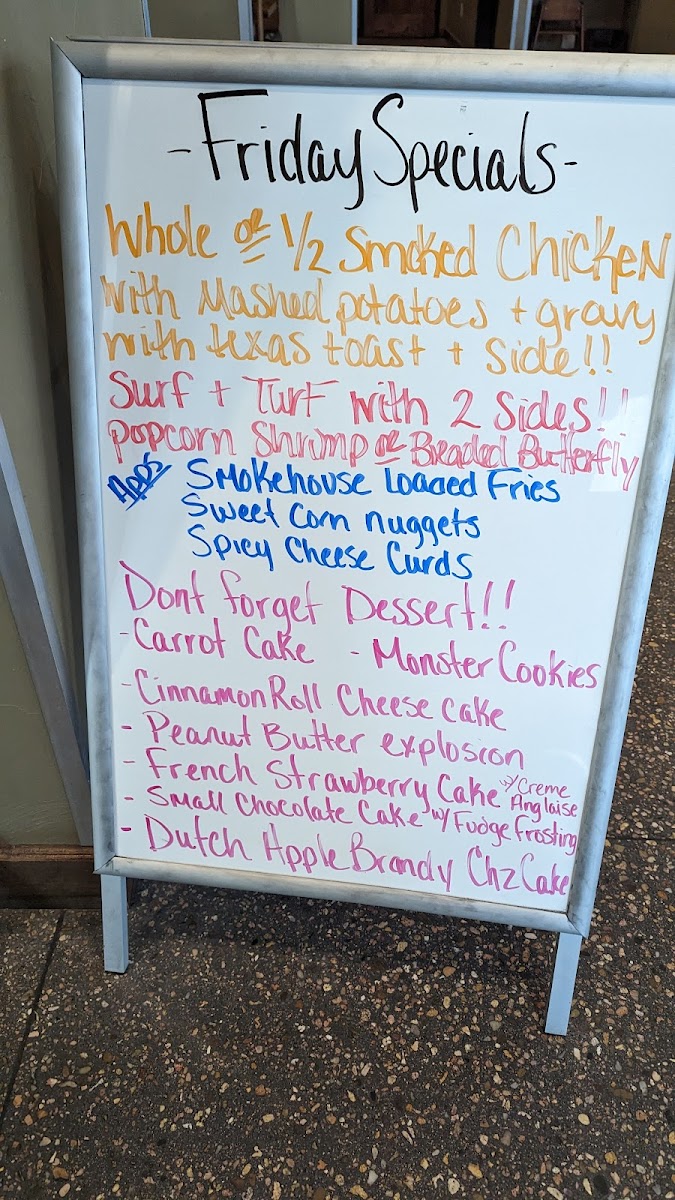 - Friday Specials -
Whole or 1/2 Smoked Chicken
with Mashed potatoes + gravy
with texas toast + side!!
Surf + Turf with 2 Sides!!
popcorn Shrimp or Breaded Butterfly
App's Smokehouse Loaded Fries
Sweet Corn nuggets
Spicy Cheese Curds
Dont forget Dessert!!
- Carrot Cake - Monster Cookies
- Cinnamon Roll Cheese cake
- Peanut Butter explosion
- French Strawberry Cake w/ Creme Anglaise
- Small Chocolate Cake w/ Fudge Frosting
- Dutch Apple Brandy Chz Cake